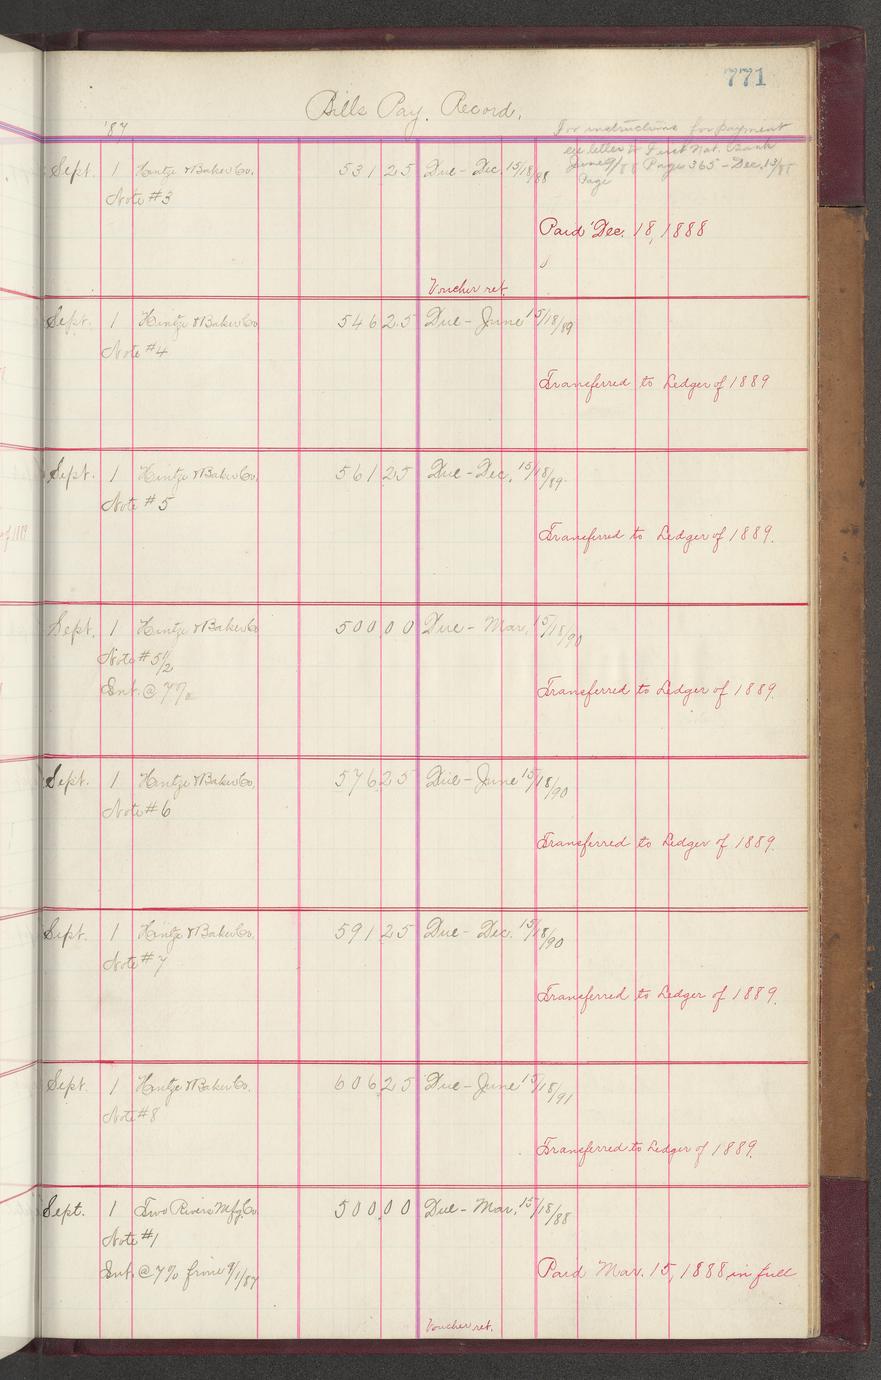 771
Bills Pay. Record.
'87
For instructions for payment
see letter to First Nat. Bank
June 9/88 Page 365 - Dec. 13/88
Page
Sept. 1 Hintze & Baker Co. 531 25 Due - Dec. 15/18/88
Note #3
Paid Dec. 18, 1888
Voucher ret.
Sept. 1 Hintze & Baker Co. 546 25 Due - June 15/18/89
Note #4
Transferred to Ledger of 1889
Sept. 1 Hintze & Baker Co. 561 25 Due - Dec. 15/18/89
Note #5
Transferred to Ledger of 1889.
Sept. 1 Hintze & Baker Co 500 00 Due - Mar. 15/18/90
Note #5 1/2
Int. @ 7%
Transferred to Ledger of 1889.
Sept. 1 Hintze & Baker Co. 576 25 Due - June 15/18/90
Note #6
Transferred to Ledger of 1889.
Sept. 1 Hintze & Baker Co. 591 25 Due - Dec. 15/18/90
Note #7
Transferred to Ledger of 1889.
Sept. 1 Hintze & Baker Co. 606 25 Due - June 15/18/91
Note #8
Transferred to Ledger of 1889.
Sept. 1 Two Rivers Mfg. Co. 500 00 Due - Mar. 15/18/88
Note #1
Int. @ 7% from 9/1/87
Paid Mar. 15, 1888 in full
Voucher ret.